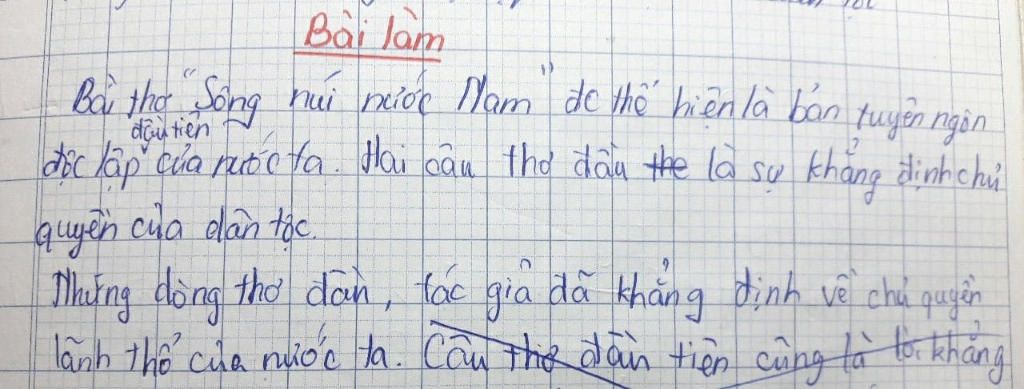 Bài làm
Bài thơ "Sông núi nước Nam" đc thể hiện là bản tuyên ngôn
đầu tiên
độc lập của nước ta. Hai câu thơ đầu the là sự khẳng định chủ
quyền của dân tộc.
Những dòng thơ đầu, tác giả đã khẳng định về chủ quyền
lãnh thổ của nước ta. Câu thơ đầu tiên cũng là lời khẳng